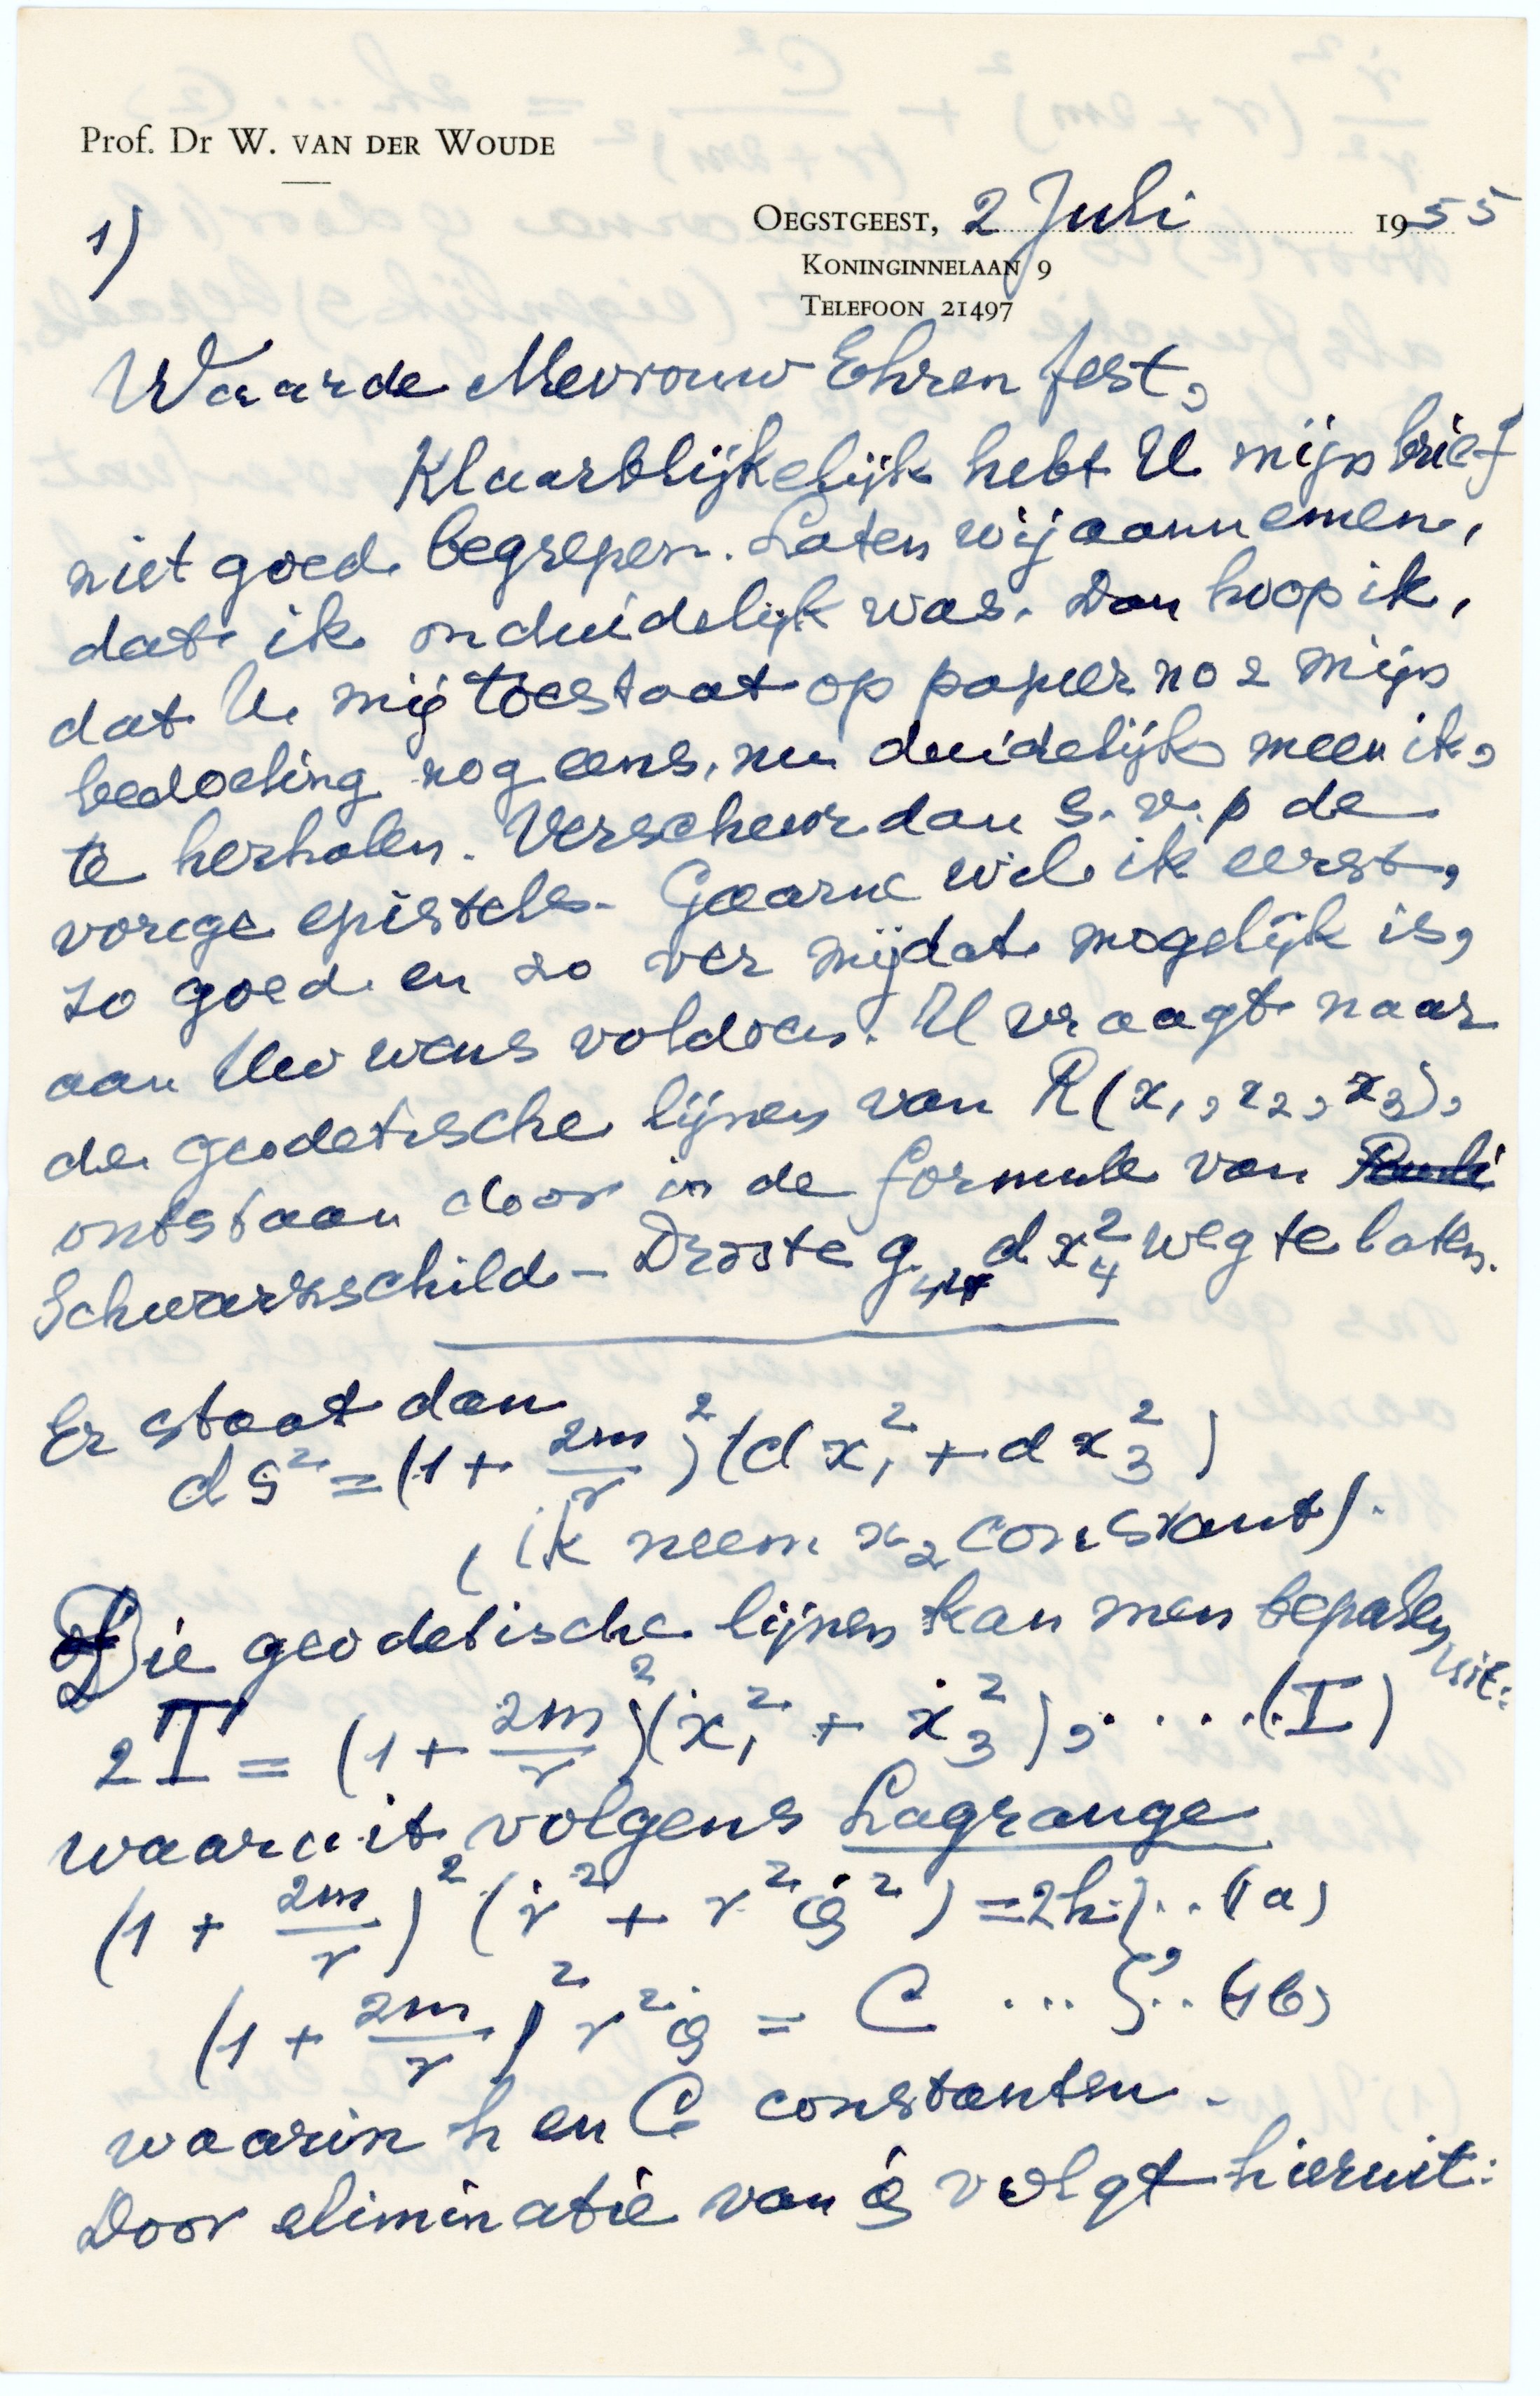 Prof. Dr W. VAN DER WOUDE
1)
OEGSTGEEST, 2 Juli 1955
KONINGINNELAAN 9
TELEFOON 21497
Waarde Mevrouw Ehrenfest,
Klaarblijkelijk hebt U mijn brief
niet goed begrepen. Laten wij aannemen,
dat ik onduidelijk was. Dan hoop ik,
dat U mij toestaat op papier no 2 mijn
bedoeling nog eens, nu duidelijk meen ik,
te herhalen. Verscheur dan s.v.p de
vorige epistels. Gaarne wil ik eerst,
zo goed en zo ver mij dat mogelijk is,
aan Uw wens voldoen. U vraagt naar
de geodetische lijnen van R(x₁, x₂, x₃),
ontstaan door in de formule van Pauli
Schwarzschild – Droste g₄₄ dx₄² weg te laten.
Er staat dan
ds² = (1 + 2m/r)² (dx₁² + dx₃²)
(ik neem x₂ constant).
Die geodetische lijnen kan men bepalen uit:
2T = (1 + 2m/r)² (ẋ₁² + ẋ₃²), .....(I)
waaruit volgens Lagrange
(1 + 2m/r)² (ṙ² + r² φ̇²) = 2h } .. (1a)
(1 + 2m/r)² r² φ̇ = C ... }, .. (1b)
waarin h en C constanten.
Door eliminatie van φ̇ volgt hieruit: